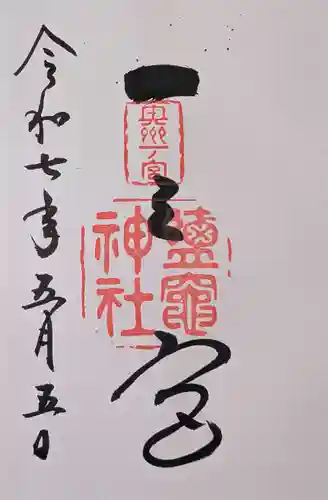 奥州一ノ宮
一之宮
鹽竈
神社
令和七年五月五日